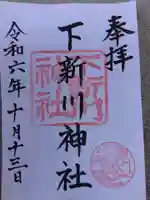 奉拝
下新川神社
令和六年十月十三日